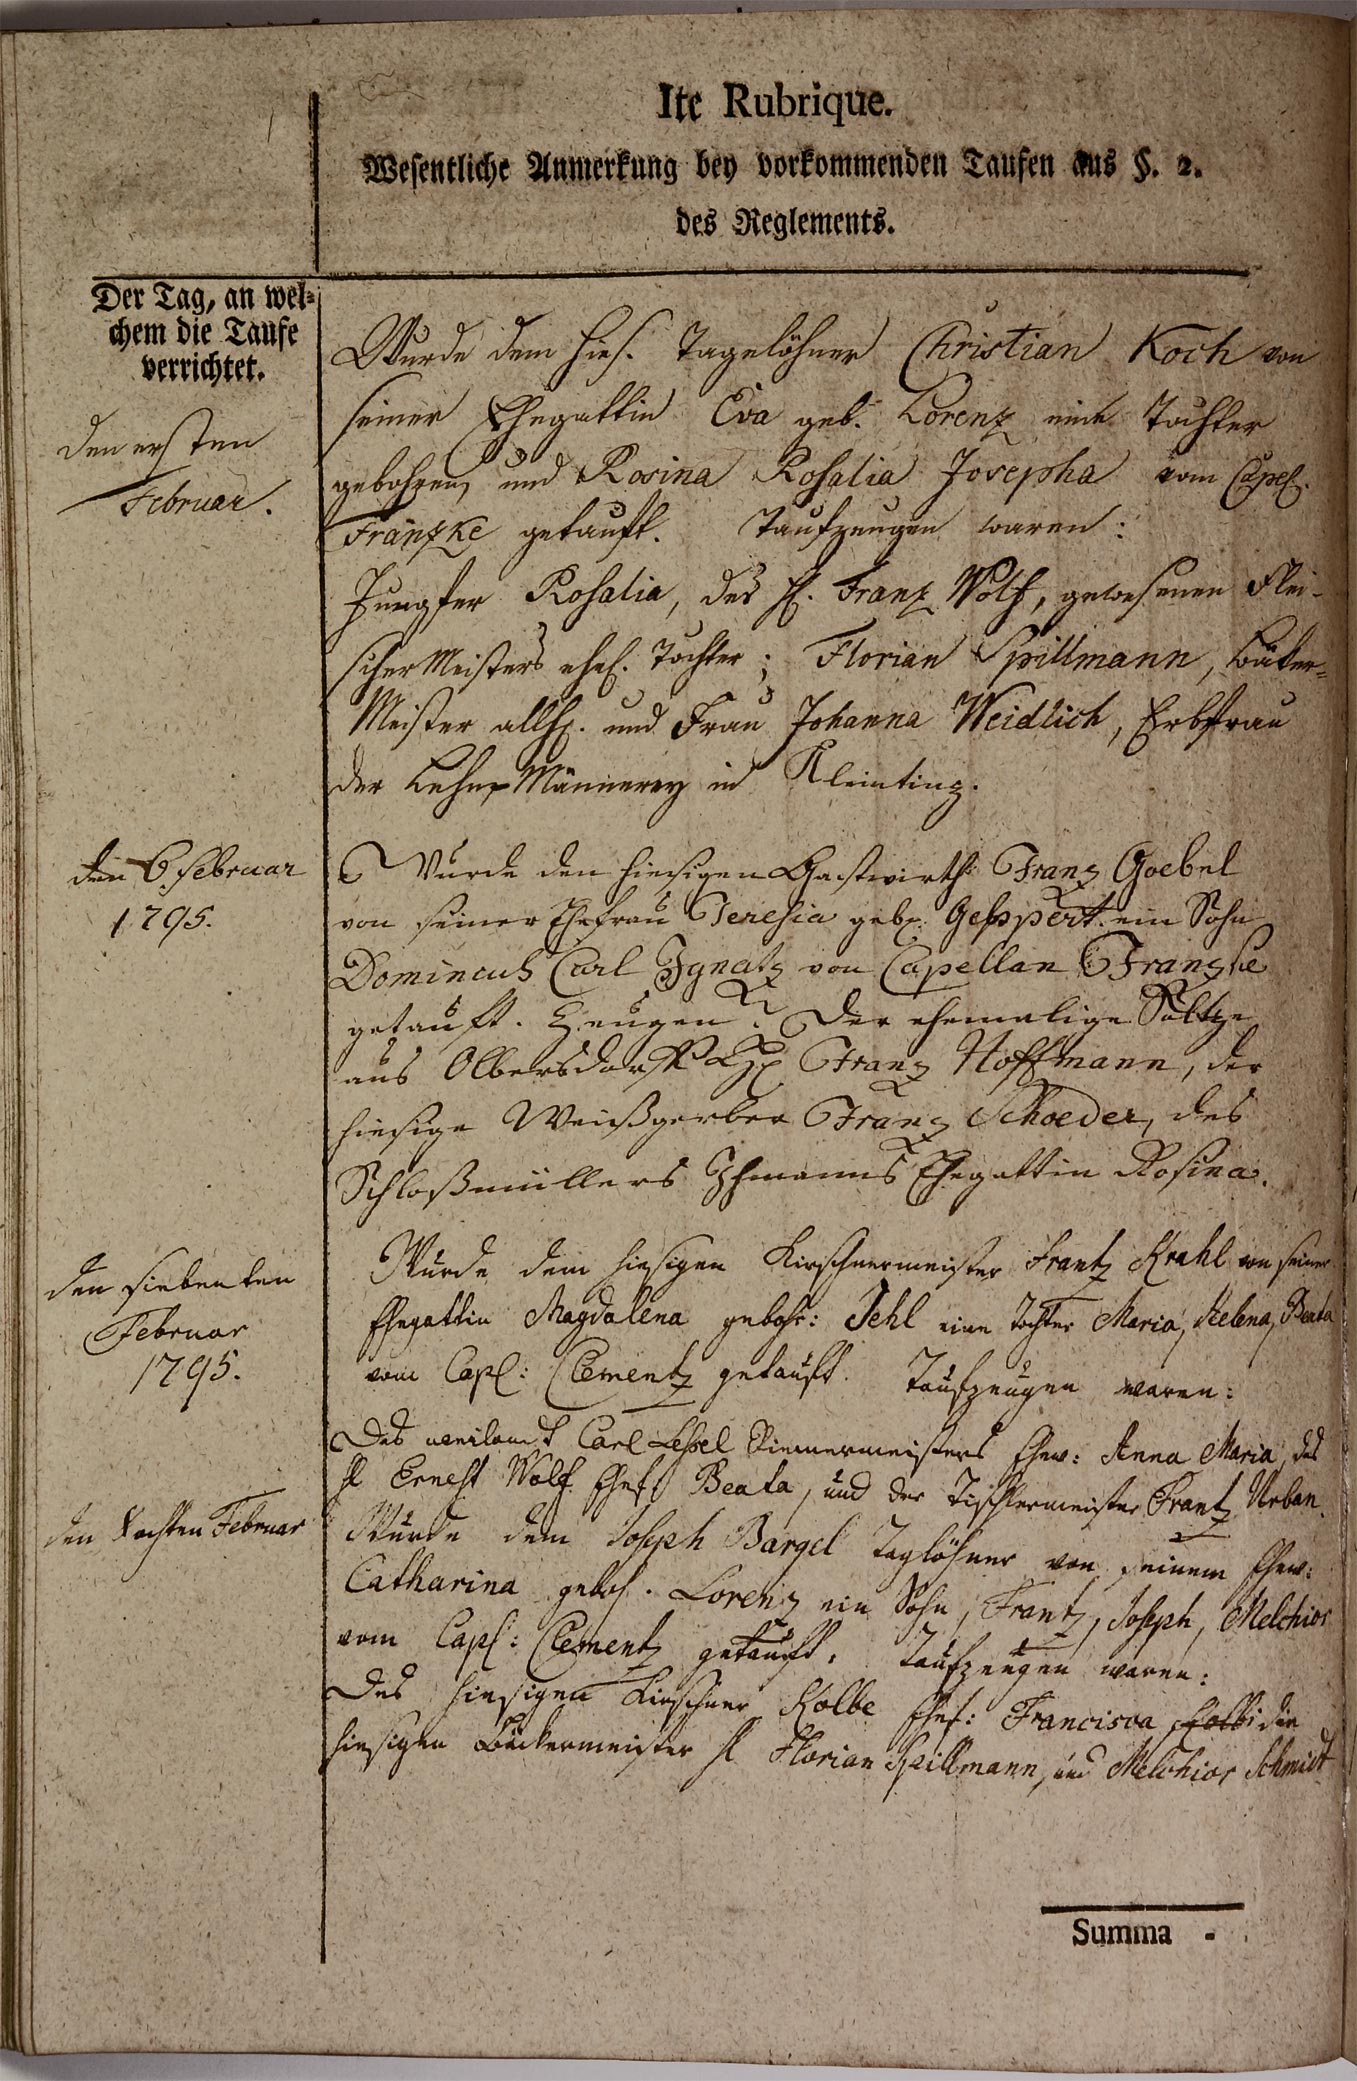 Ite Rubrique.
Wesentliche Anmerkung bey vorkommenden Taufen aus §. 2.
des Reglements.
Der Tag, an wel-
chem die Taufe
verrichtet.
den ersten
Februar.
Wurde dem hies. Tagelöhner Christian Koch von
seiner Ehegattin Eva geb. Lorenz eine Tochter
gebohren, und Rosina Rosalia Josepha vom Capel.
Franzke getauft. Taufzeugen waren:
Jungfer Rosalia, des H. Franz Wolf, gewesenen Flei-
scher Meisters ehel. Tochter; Florian Spillmann, Bäker-
Meister allh. und Frau Johanna Weidlich, Erbfrau
der Lehn-Männerey in Kleintinz.
den 6. Februar
1795.
Wurde den hiesigen Gastwirth Franz Goebel
von seiner Ehefrau Teresia geb. Geppert ein Sohn
Domincus Carl Ignatz von Capellan Franzke
getauft. Zeugen: Der ehemalige Scholtze
aus Olbersdorf Franz Hoffmann, der
hiesige Weißgerber Franz Schoeder, des
Schloßmüllers Ihmanns Ehegattin Rosina.
den siebenten
Februar
1795.
Wurde dem hiesigen Kirschnermeister Frantz Krahl von seiner
Ehegattin Magdalena gebohr: Jehl eine Tochter Maria, Helena, Beata
vom Capl: Clementz getauft. Taufzeugen waren:
Des weilandt Carl Lessel Riemermeisters Ehew: Anna Maria, des
H Ernest Wolf Ehef. Beata, und der Tischlermeister Frantz Urban.
den Achten Februar
Wurde dem Joseph Bargel Taglöhner von seinem Ehew:
Catharina geboh. Lorenz ein Sohn, Frantz, Joseph, Melchior
vom Capl: Clementz getauft. Taufzeugen waren:
Des hiesigen Kirschner Kolbe Ehef: Francisca die
hiesigen Bäckermeister H Florian Spillmann, und Melchior Schmidt
Summa -